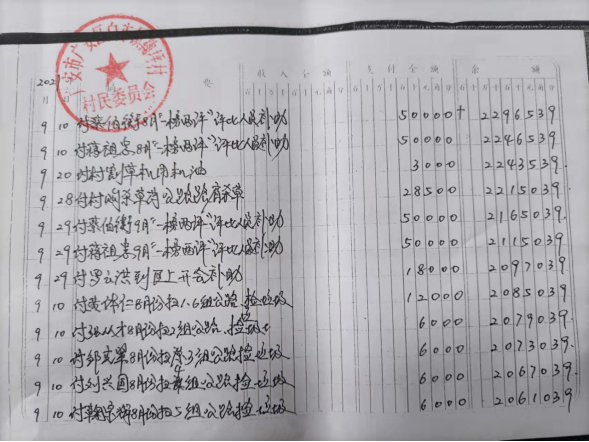 村民委员会
202
收入金额 支付金额 余额
月 日
9 10 付蔡伯衡8月"一榜两评"评比人员补助 50000 2296539
9 10 付蒋祖志8月"一榜两评"评比人员补助 50000 2246539
9 20 付村割草机用机油 3000 2243539
9 28 付村购杀草 公路 杀草 28500 2215039
9 29 付蔡伯衡9月"一榜两评"评比人员补助 50000 2165039
9 29 付蒋祖志9月"一榜两评"评比人员补助 50000 2115039
9 29 付罗云洪到区上开会补助 18000 2097039
9 10 付黄体仁8月份扫1.6组公路、捡垃圾 12000 2085039
9 10 付 才8月份扫2组公路、捡垃圾 6000 2079039
9 10 付邹 翠8月份扫 3组公路捡垃圾 6000 2073039
9 10 付刘兴国8月份扫4组公路捡垃圾 6000 2067039
9 10 付 8月份扫5组公路、捡垃圾 6000 2061039